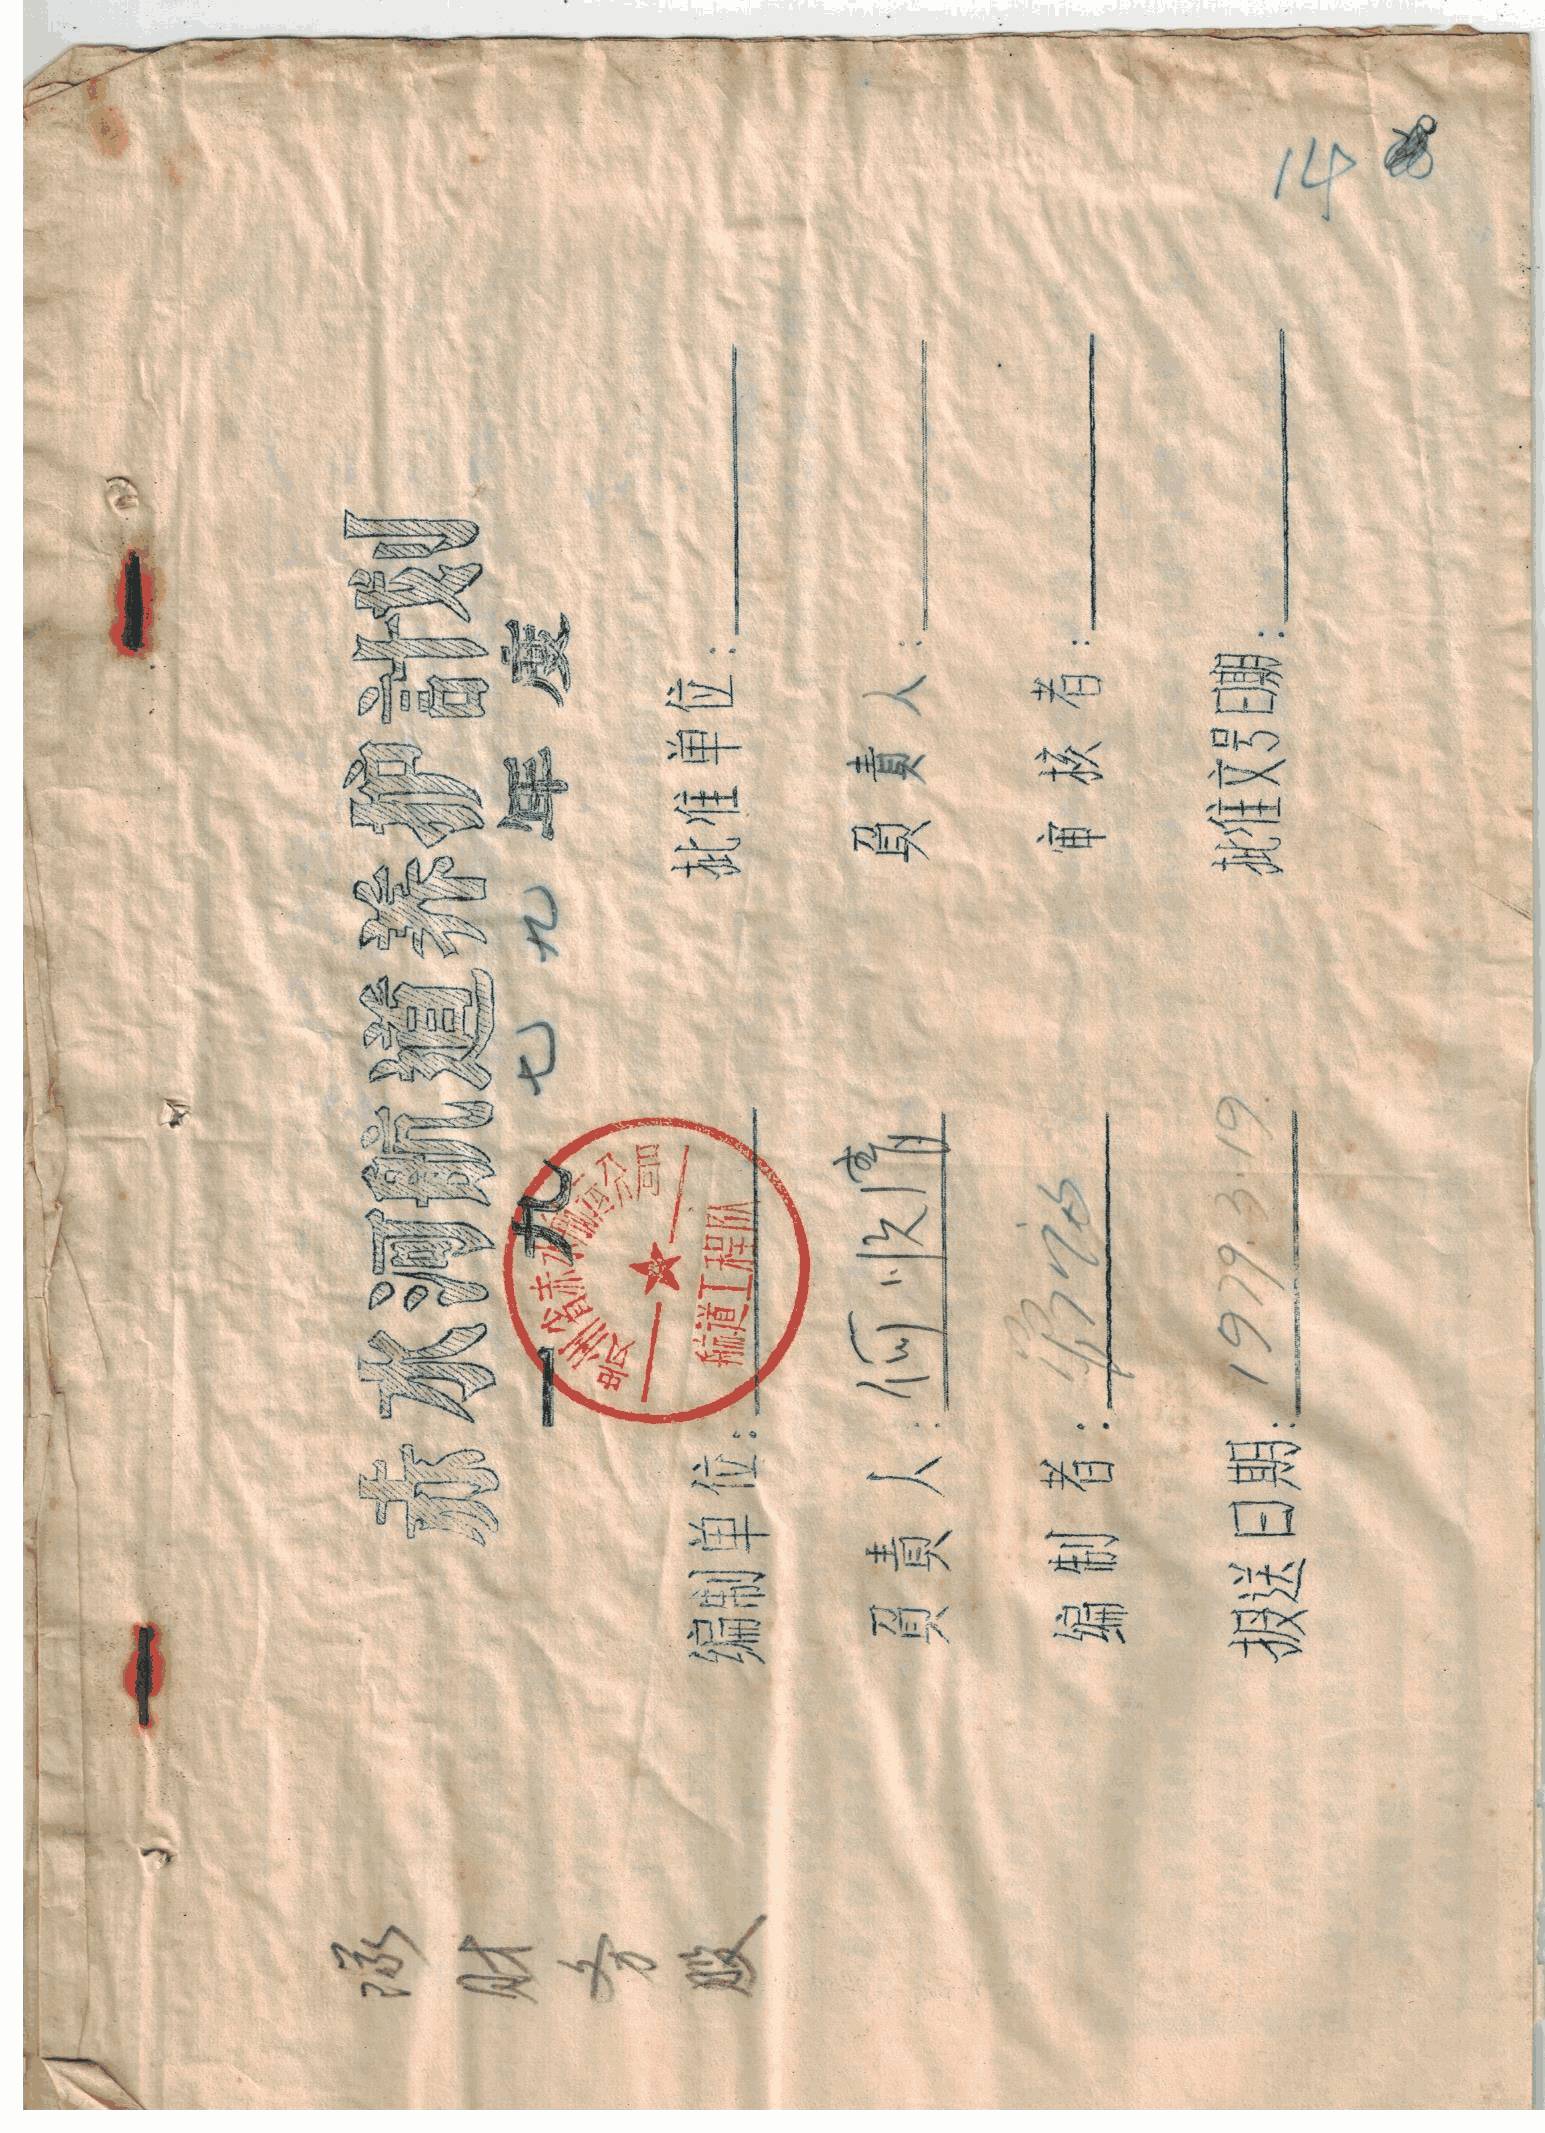 14
赤水河航道养护計划
一九七九年度
编制单位:
贵州省赤水航运分局
航道工程队
批准单位:
負責人:何
負責人:
编制者:
审核者:
报送日期:1979.3.19.
批准文号日期:
财务股